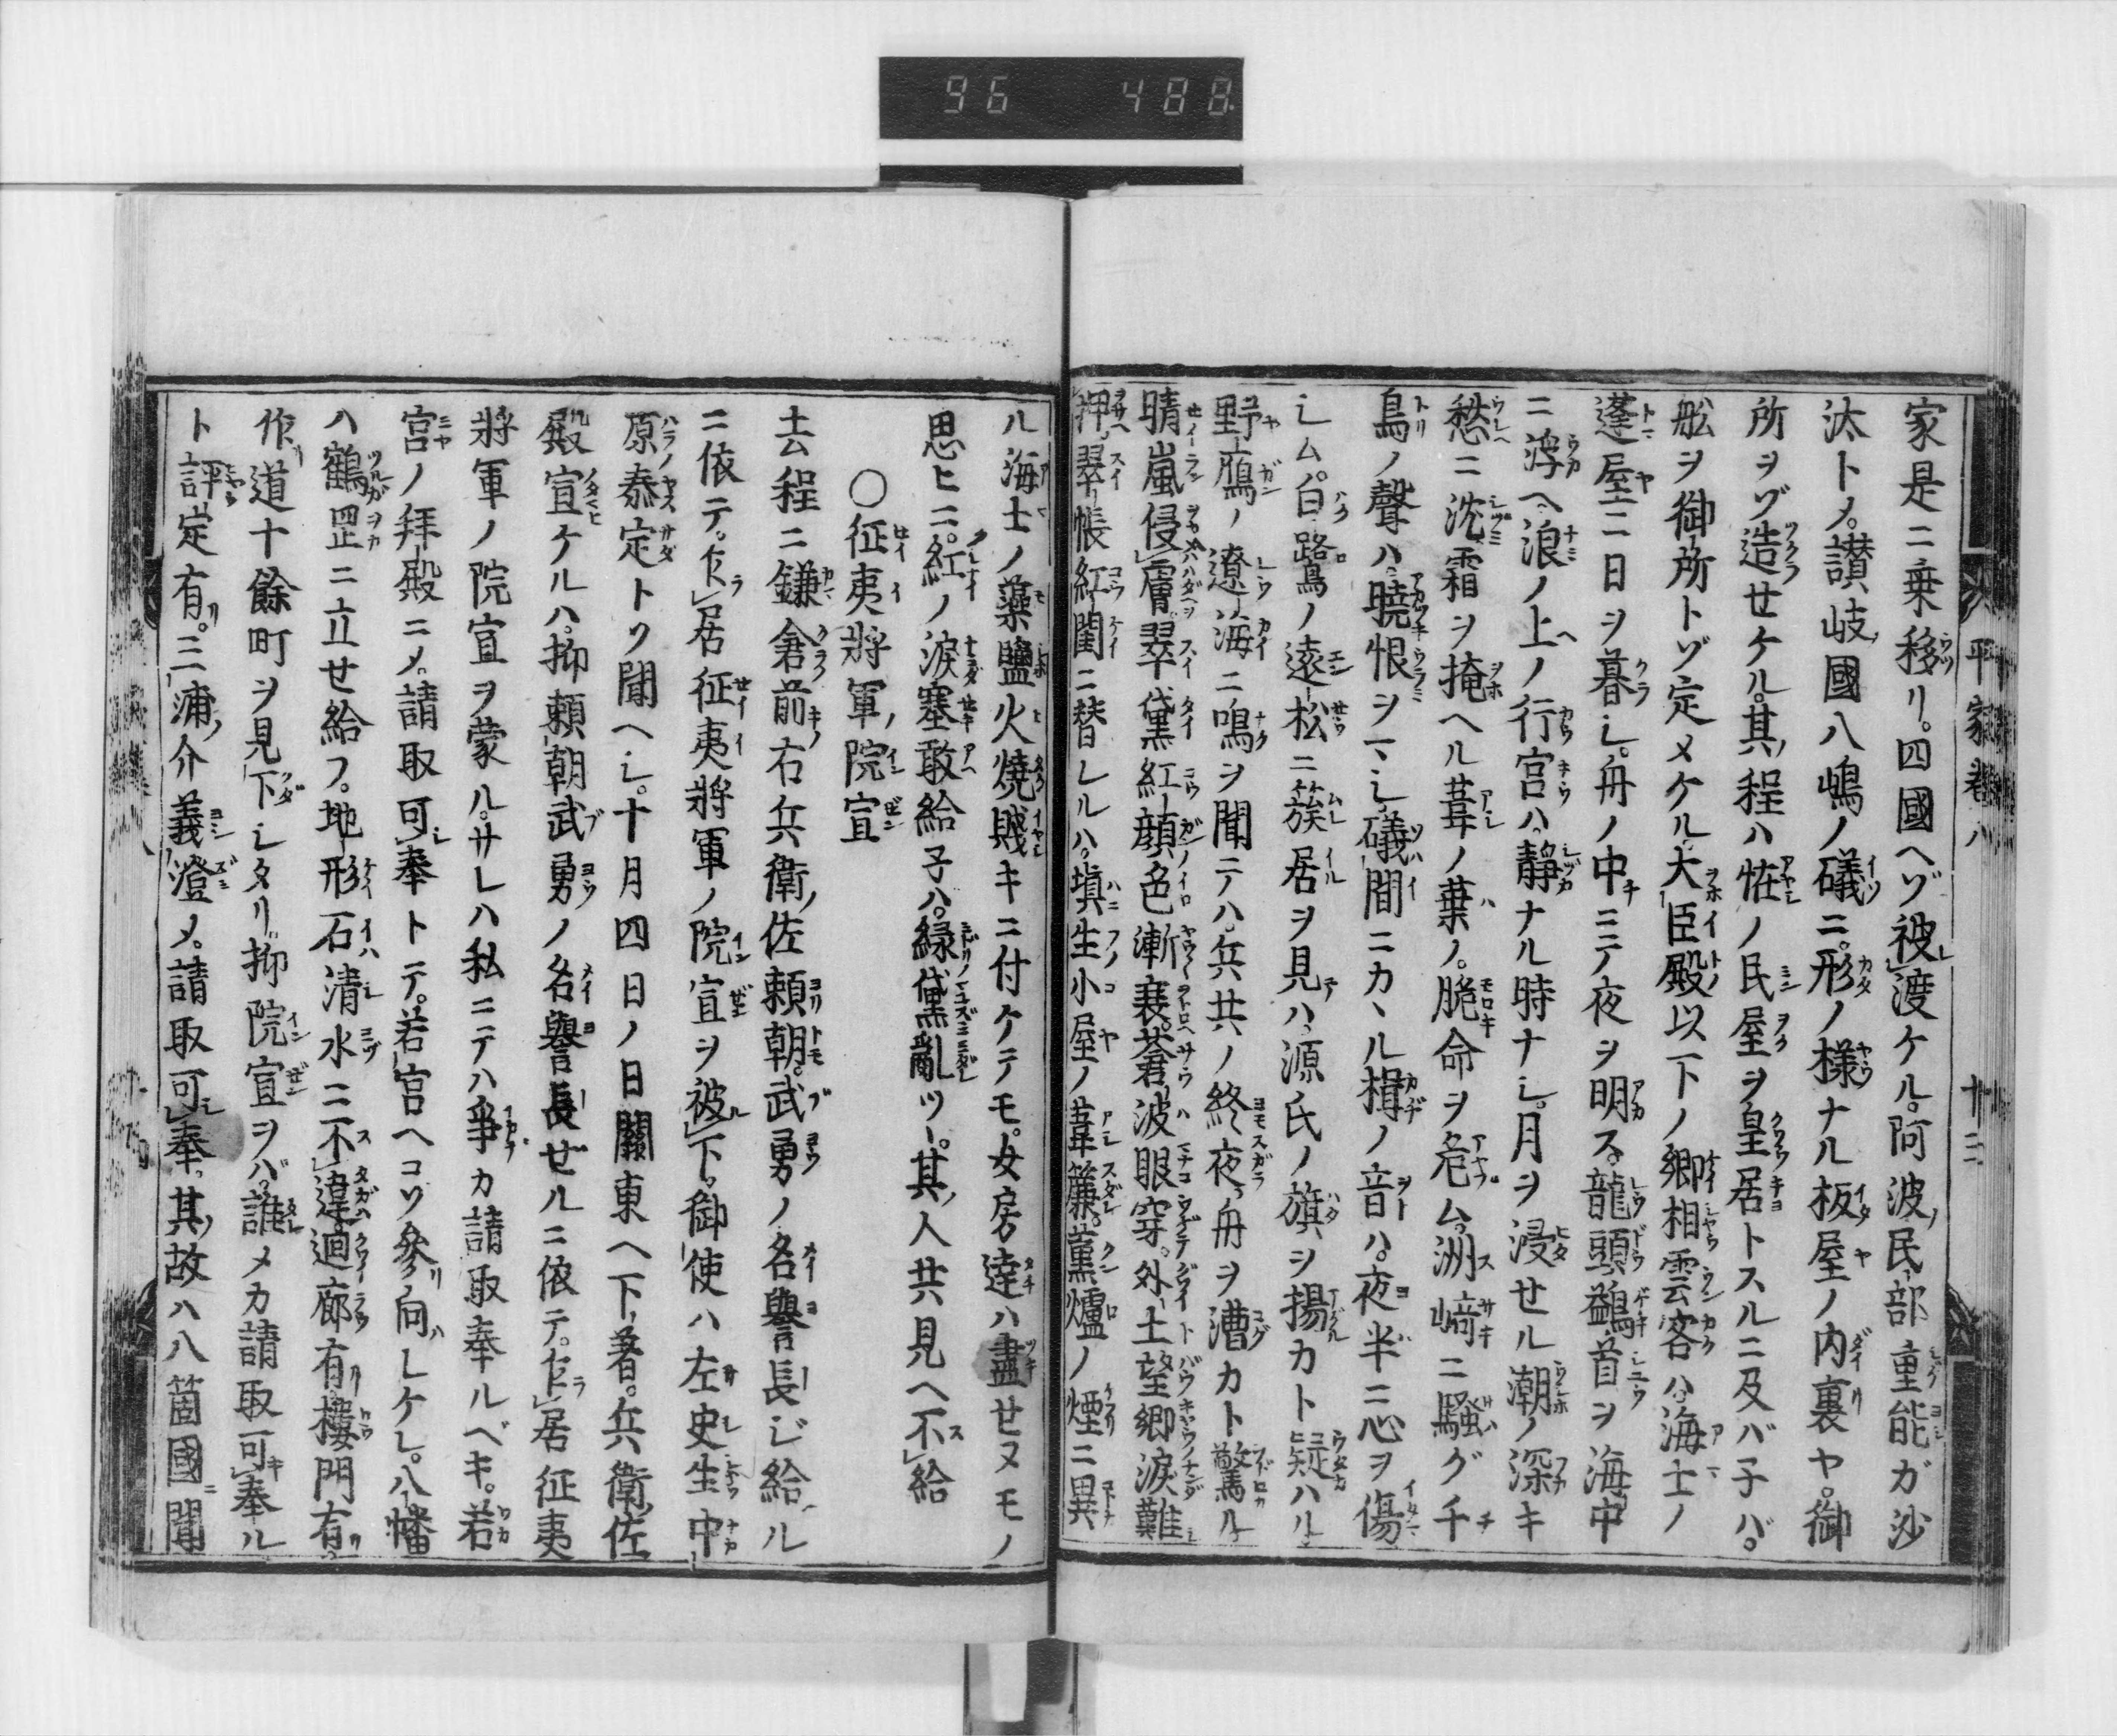 96 488
平家巻八 十三
家是ニ乗移リ。四國ヘゾ被渡ケル。阿波民部重能ガ沙
汰トメ。讃岐國八嶋ノ礒ニ。形ノ様ナル板屋ノ内裏ヤ。御
所ヲゾ造セケル。其程ハ恠ノ民屋ヲ皇居トスルニ及バ子バ。
舩ヲ御所トゾ定メケル。大臣殿以下ノ卿相雲客ハ。海士ノ
蓬屋ニ日ヲ暮シ。舟ノ中ニテ夜ヲ明ス。龍頭鷁首ヲ海中
ニ浮ヘ。浪ノ上ノ行宮ハ。静ナル時ナシ。月ヲ浸セル潮ノ深キ
愁ニ沈。霜ヲ掩ヘル葦ノ葉ノ。脆命ヲ危ム。洲﨑ニ騒グ千
鳥ノ聲ハ。曉恨ヲマシ。礒間ニカヽル楫ノ音ハ。夜半ニ心ヲ傷
シム。白鷺ノ遠松ニ簇居ヲ見ハ。源氏ノ旗ヲ揚カト疑ハル。
野鴈ノ遼海ニ鳴ヲ聞テハ。兵共ノ終夜舟ヲ漕カト驚ル。
晴嵐侵膚。翠黛紅顔色漸衰。蒼波眼穿。外土望郷涙難
押。翠帳紅閨ニ替レルハ。塡生小屋ノ葦簾。薫爐ノ煙ニ異
ル海士ノ藻鹽火燒賤キニ付ケテモ。女房達ハ盡セヌモノ
思ヒニ。紅ノ涙塞敢給子ハ。緑黛亂ツヽ。其人共見ヘ不給
〇征夷將軍ノ院宣
去程ニ鎌倉前右兵衛佐頼朝。武勇ノ名譽長ジ給ル
ニ依テ。乍居征夷將軍ノ院宣ヲ被下。御使ハ左史生中
原泰定トソ聞ヘシ。十月四日ノ日關東ヘ下著。兵衛佐
殿宣ケルハ。抑頼朝武勇ノ名譽長ゼルニ依テ。乍居征夷
將軍ノ院宣ヲ蒙ル。サレハ私ニテハ爭カ請取奉ルベキ。若
宮ノ拝殿ニメ。請取可奉トテ。若宮ヘコソ參向レケレ。八幡
ハ鶴罡ニ立セ給フ。地形石清水ニ不違。廻廊有。樓門有。
作道十餘町ヲ見下シタリ。抑院宣ヲバ。誰メカ請取可奉ル
ト評定有。三浦介義澄メ。請取可奉。其故ハ八箇國聞